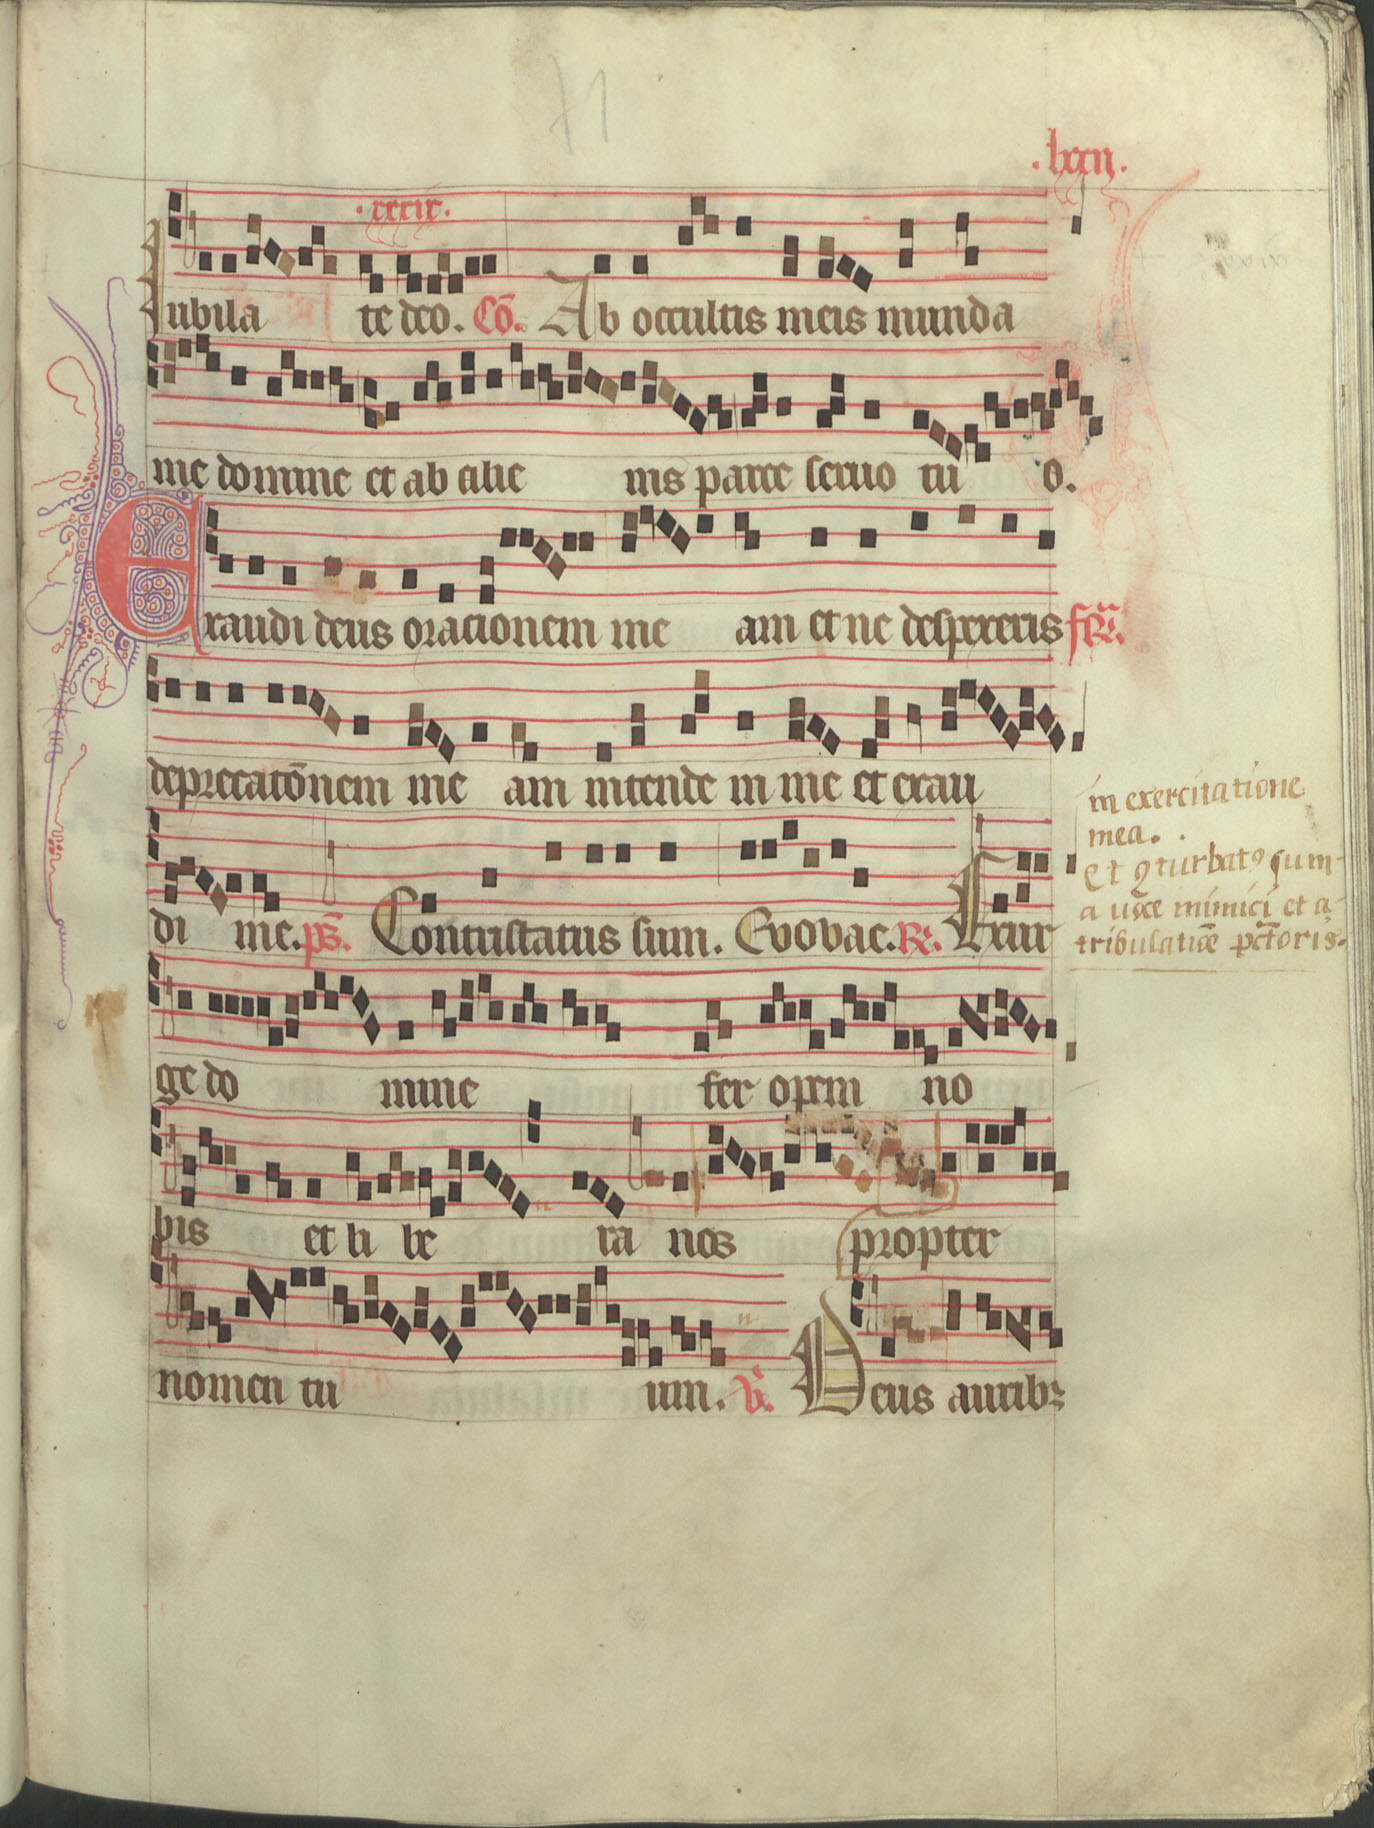 71
.lxxii.
.xxxix.
Iubila te deo. Cō. Ab occultis meis munda
me domine et ab alie nis parce seruo tu o.
Exaudi deus orationem me am et ne despexeris
deprecatōnem me am intende in me et exau
in exercitatione
mea.
di me. ps̄. Contristatus sum. Evovae. R. Exur
et ꝯturbatꝯ sum
a uoce inimici et a
tribulatiōe pctōris.
ge do mine fer opem no
bis et li be ra nos propter
nomen tu um. V. Deus auribꝫ